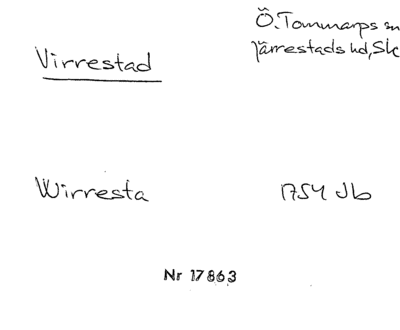 Ö. Tommarps sn
Järrestads hd, Sk
Virrestad
Wirresta 1754 Jb
Nr 17863